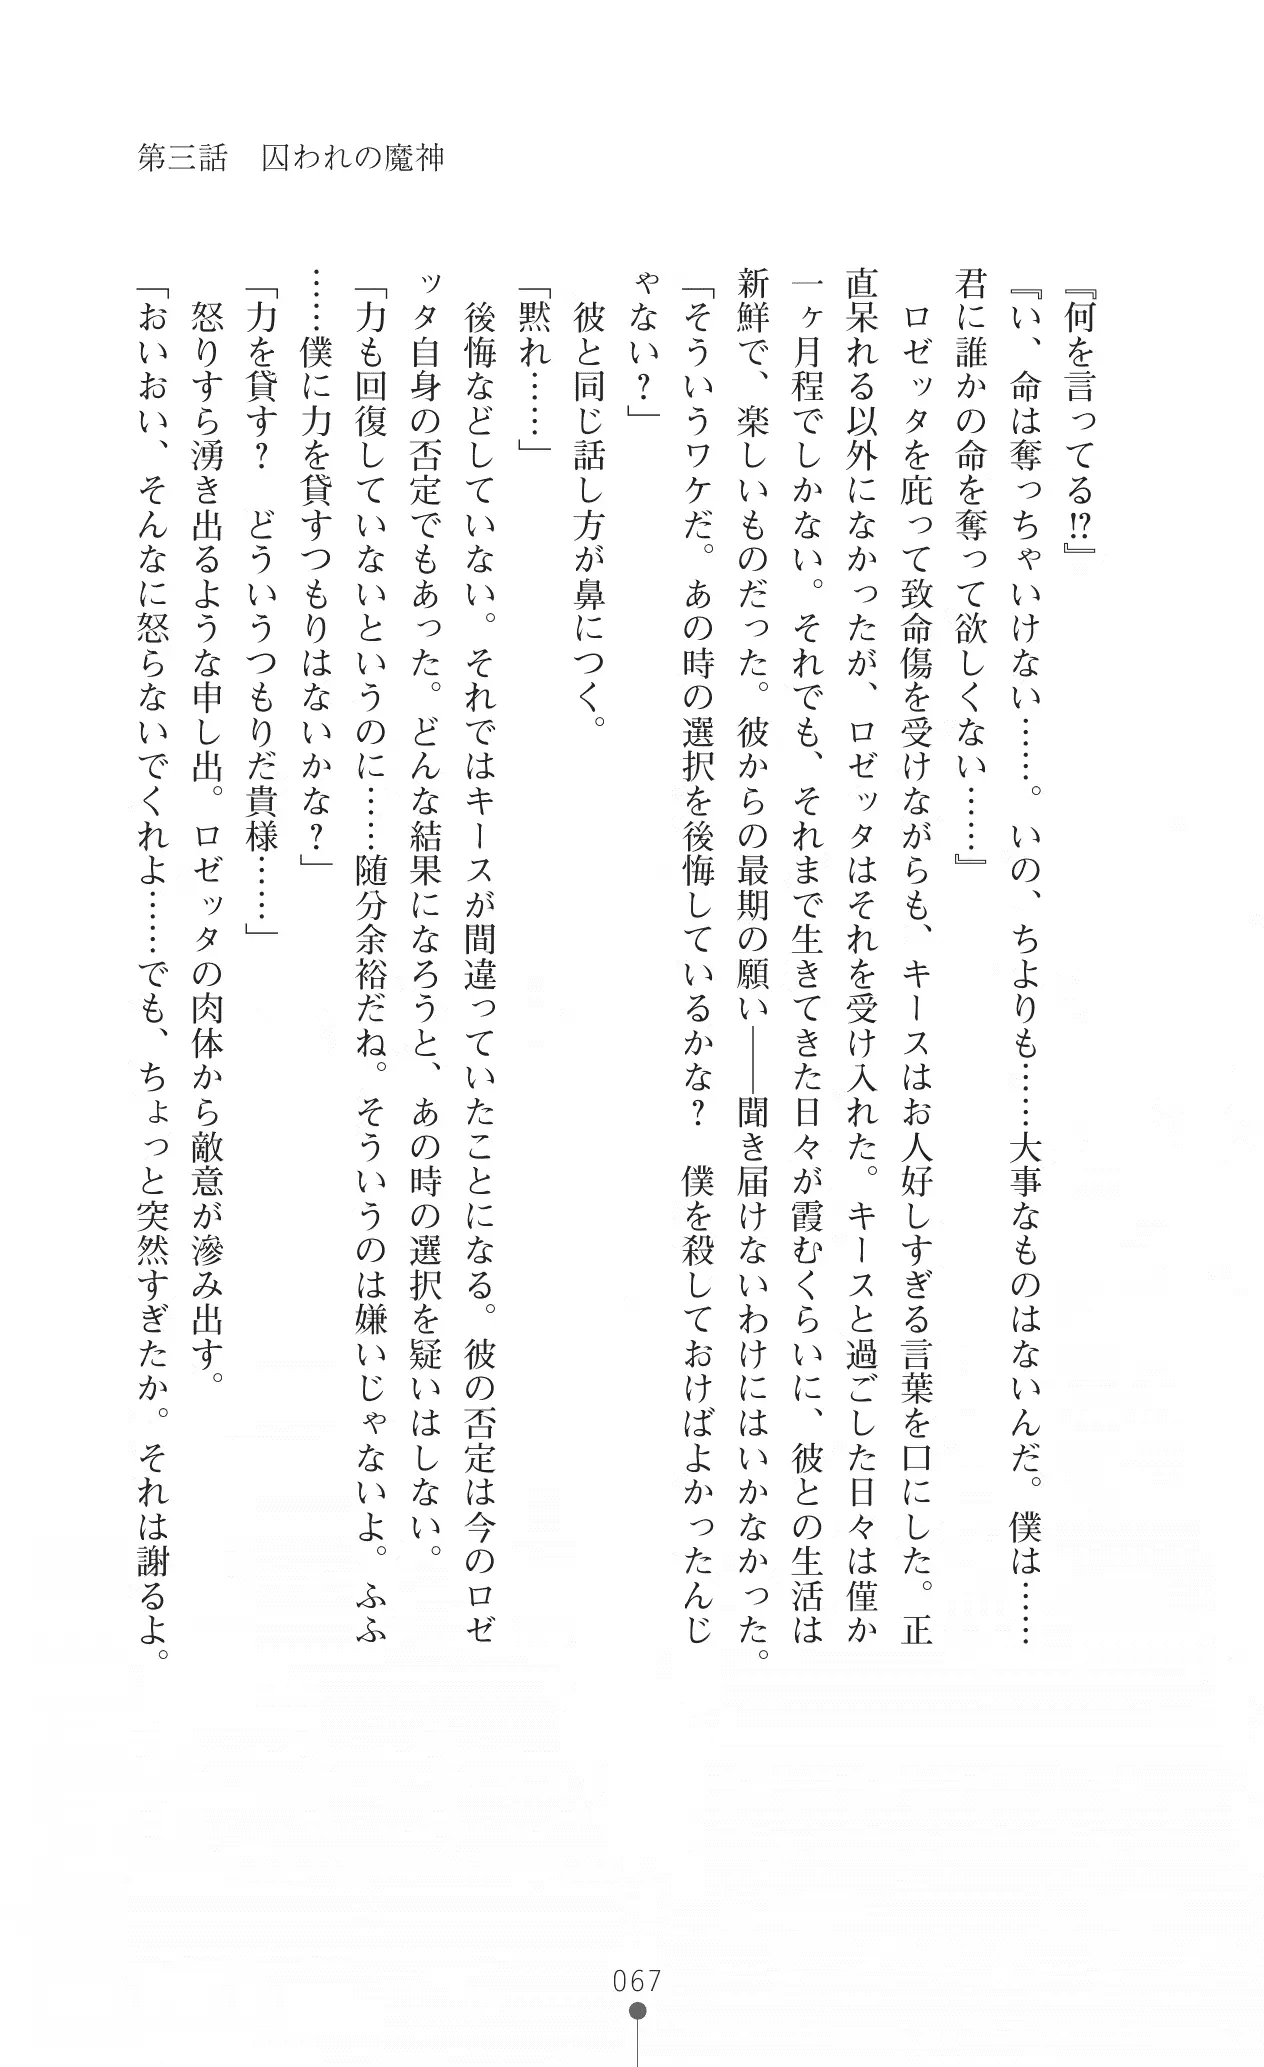 第三話　囚われの魔神
『何を言ってる!?』
『い、命は奪っちゃいけない……。いの、ちよりも……大事なものはないんだ。僕は……
君に誰かの命を奪って欲しくない……』
　ロゼッタを庇って致命傷を受けながらも、キースはお人好しすぎる言葉を口にした。正
直呆れる以外になかったが、ロゼッタはそれを受け入れた。キースと過ごした日々は僅か
一ヶ月程でしかない。それでも、それまで生きてきた日々が霞むくらいに、彼との生活は
新鮮で、楽しいものだった。彼からの最期の願い――聞き届けないわけにはいかなかった。
「そういうワケだ。あの時の選択を後悔しているかな？　僕を殺しておけばよかったんじ
ゃない？」
　彼と同じ話し方が鼻につく。
「黙れ……」
　後悔などしていない。それではキースが間違っていたことになる。彼の否定は今のロゼ
ッタ自身の否定でもあった。どんな結果になろうと、あの時の選択を疑いはしない。
「力も回復していないというのに……随分余裕だね。そういうのは嫌いじゃないよ。ふふ
……僕に力を貸すつもりはないかな？」
「力を貸す？　どういうつもりだ貴様……」
　怒りすら湧き出るような申し出。ロゼッタの肉体から敵意が滲み出す。
「おいおい、そんなに怒らないでくれよ……でも、ちょっと突然すぎたか。それは謝るよ。
067